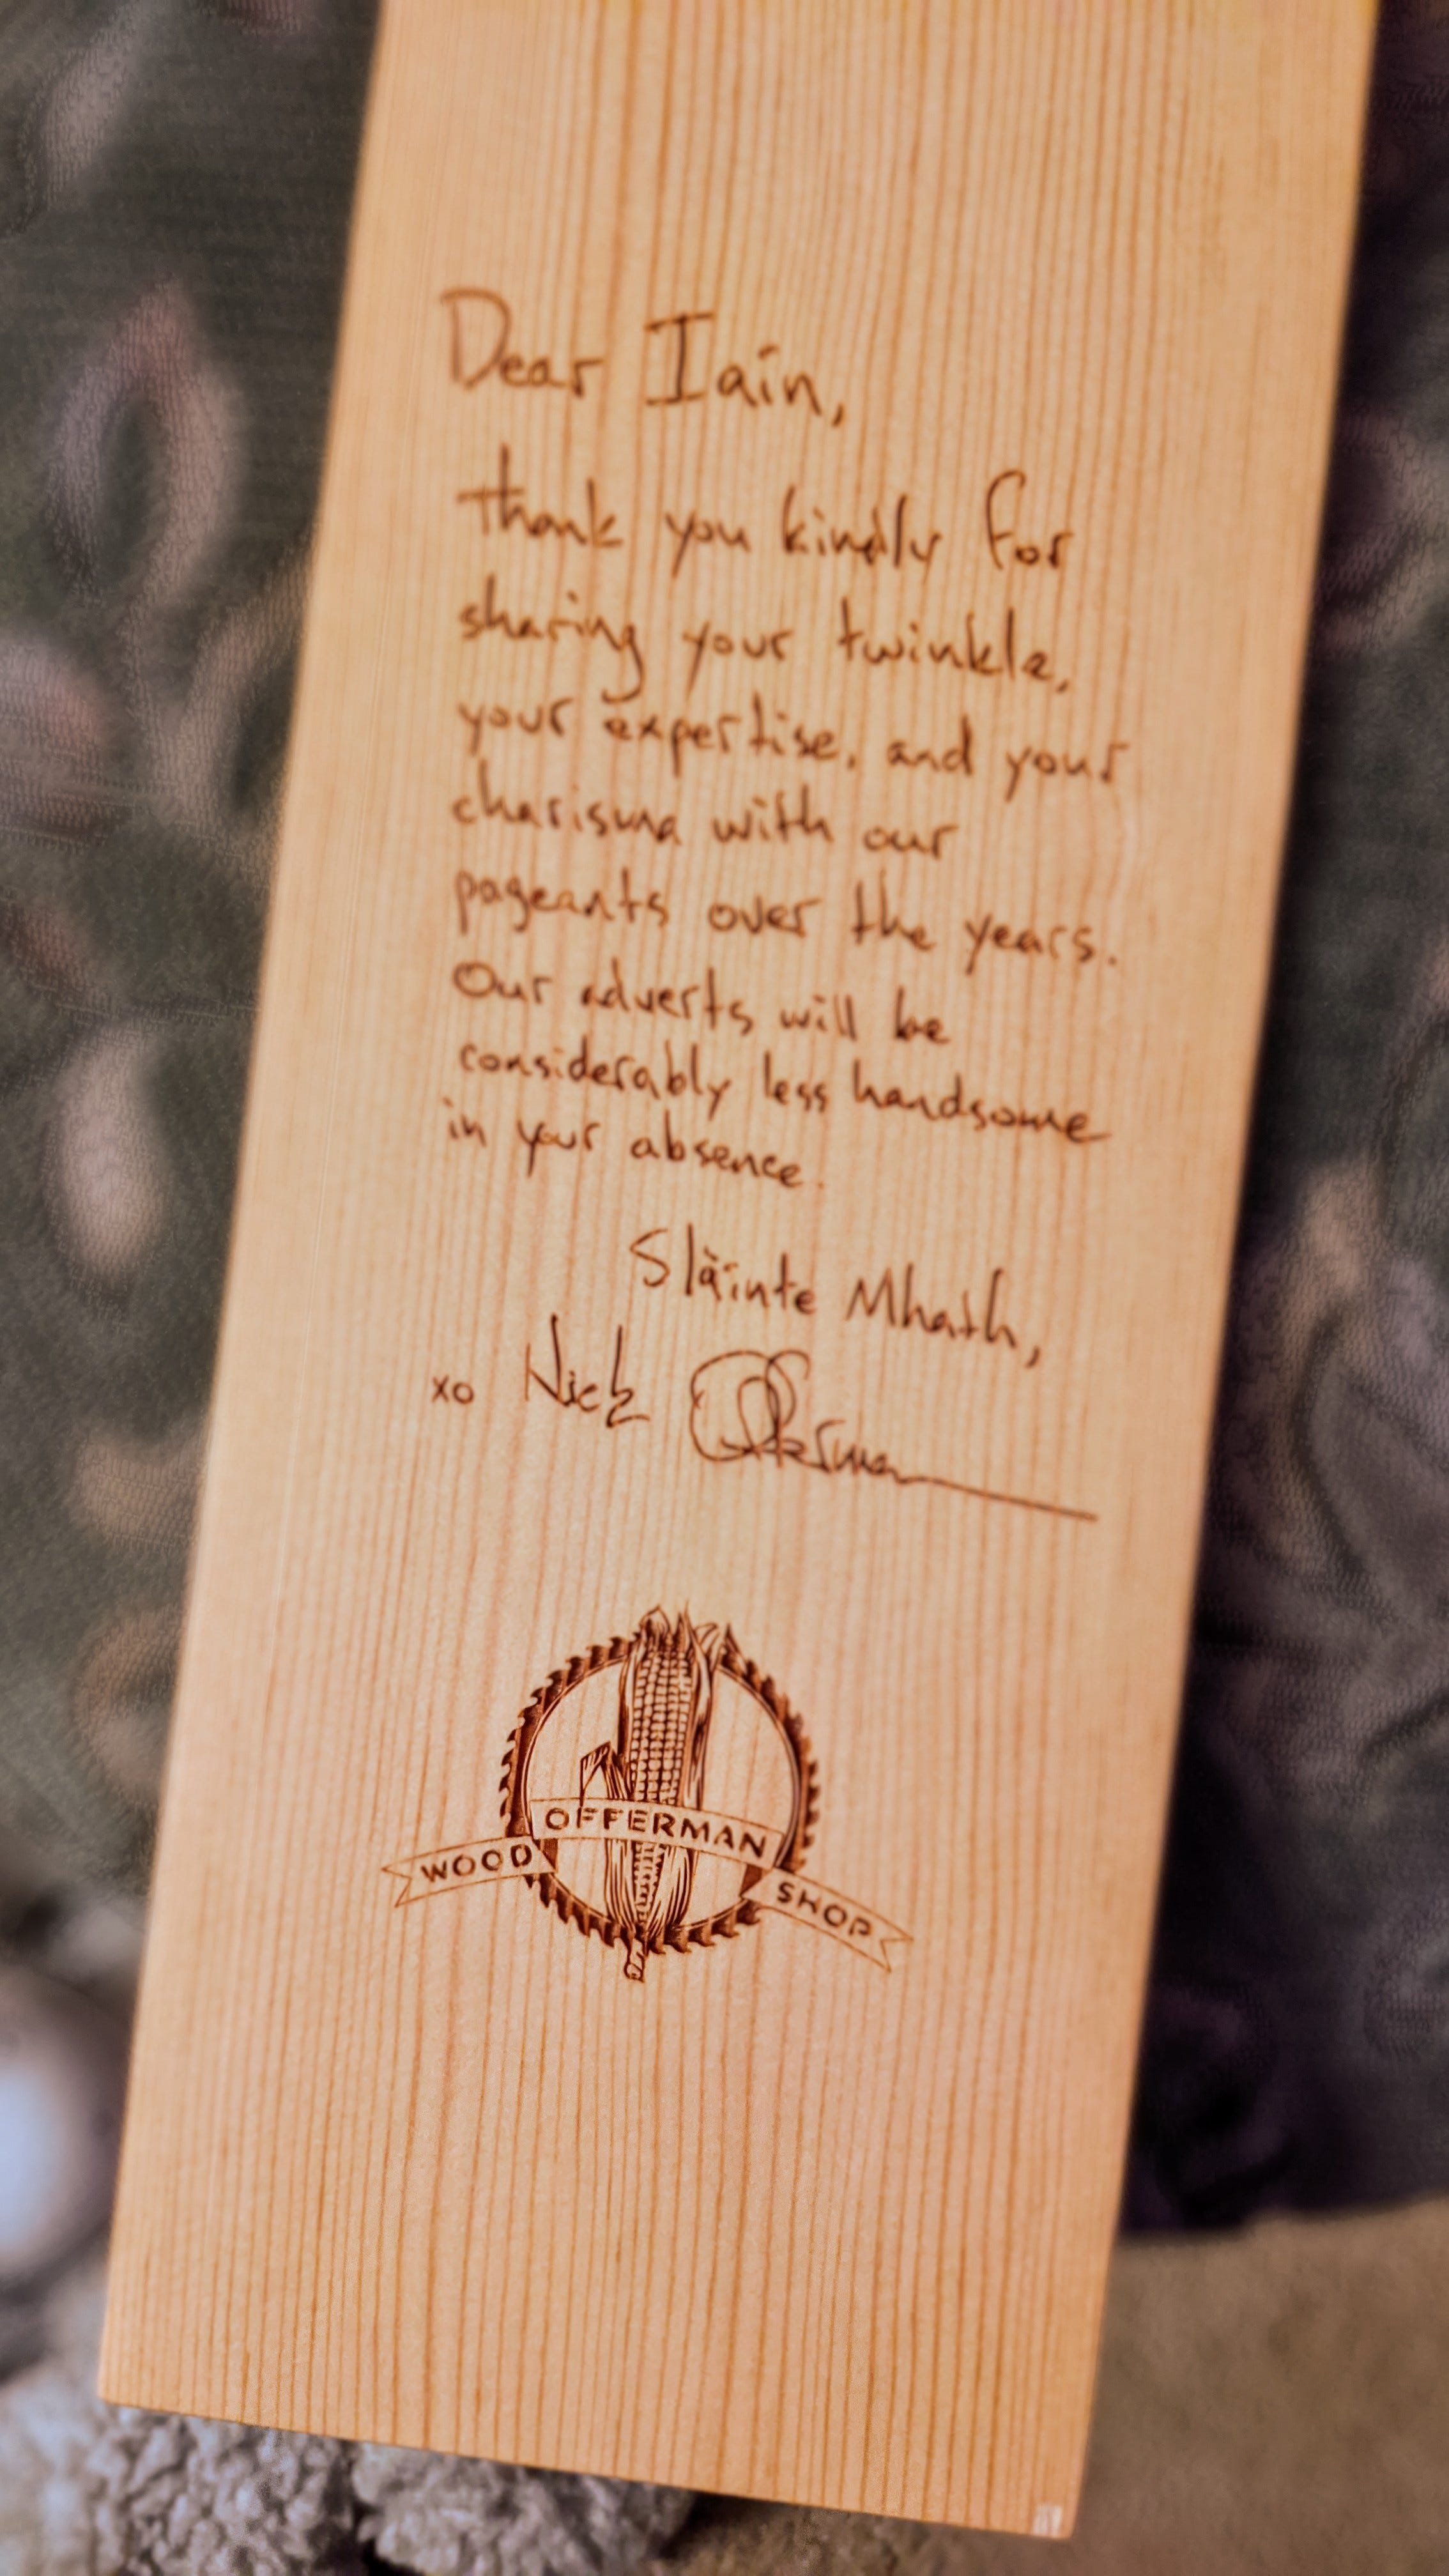 Dear Iain,
Thank you kindly for
sharing your twinkle,
your expertise, and your
charisma with our
pageants over the years.
Our adverts will be
considerably less handsome
in your absence.
Slàinte Mhath,
xo Nick Offerman
OFFERMAN
WOOD SHOP